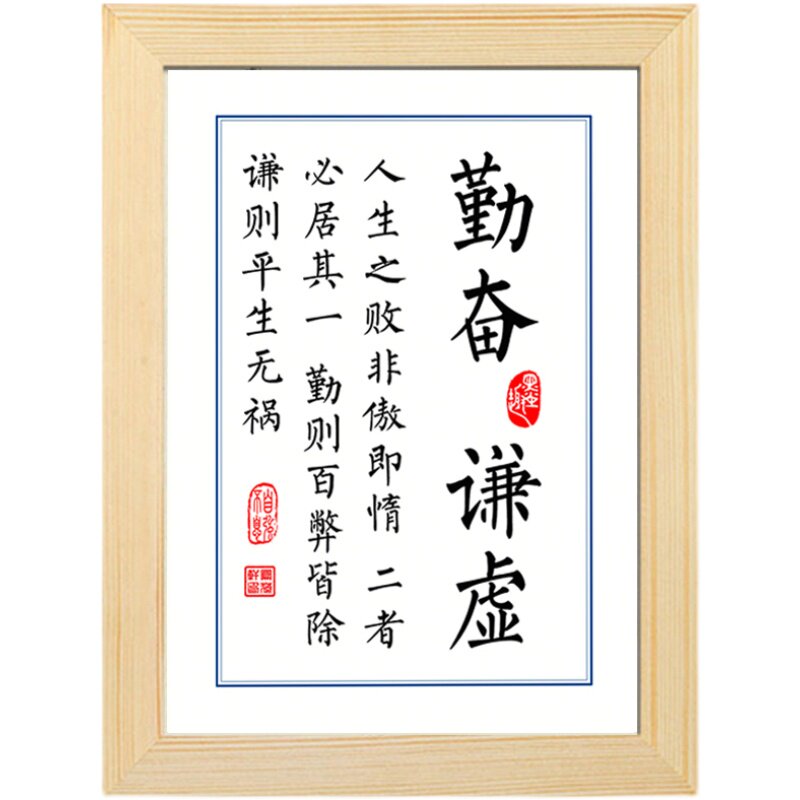 勤奋 谦虚
人生之败非傲即惰 二者
必居其一 勤则百弊皆除
谦则平生无祸
自强不息